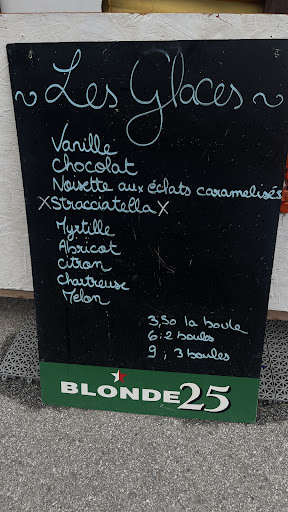 ~ Les Glaces ~
Vanille
Chocolat
Noisette aux éclats caramelisés
X Stracciatella X
Myrtille
Abricot
citron
Chartreuse
Melon
3,50 la boule
6 : 2 boules
9 ; 3 boules
BLONDE 25